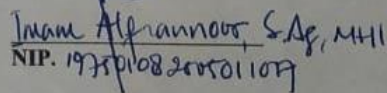 Imam Alfiannoor, S.Ag, MHI
NIP. 197501082005011079